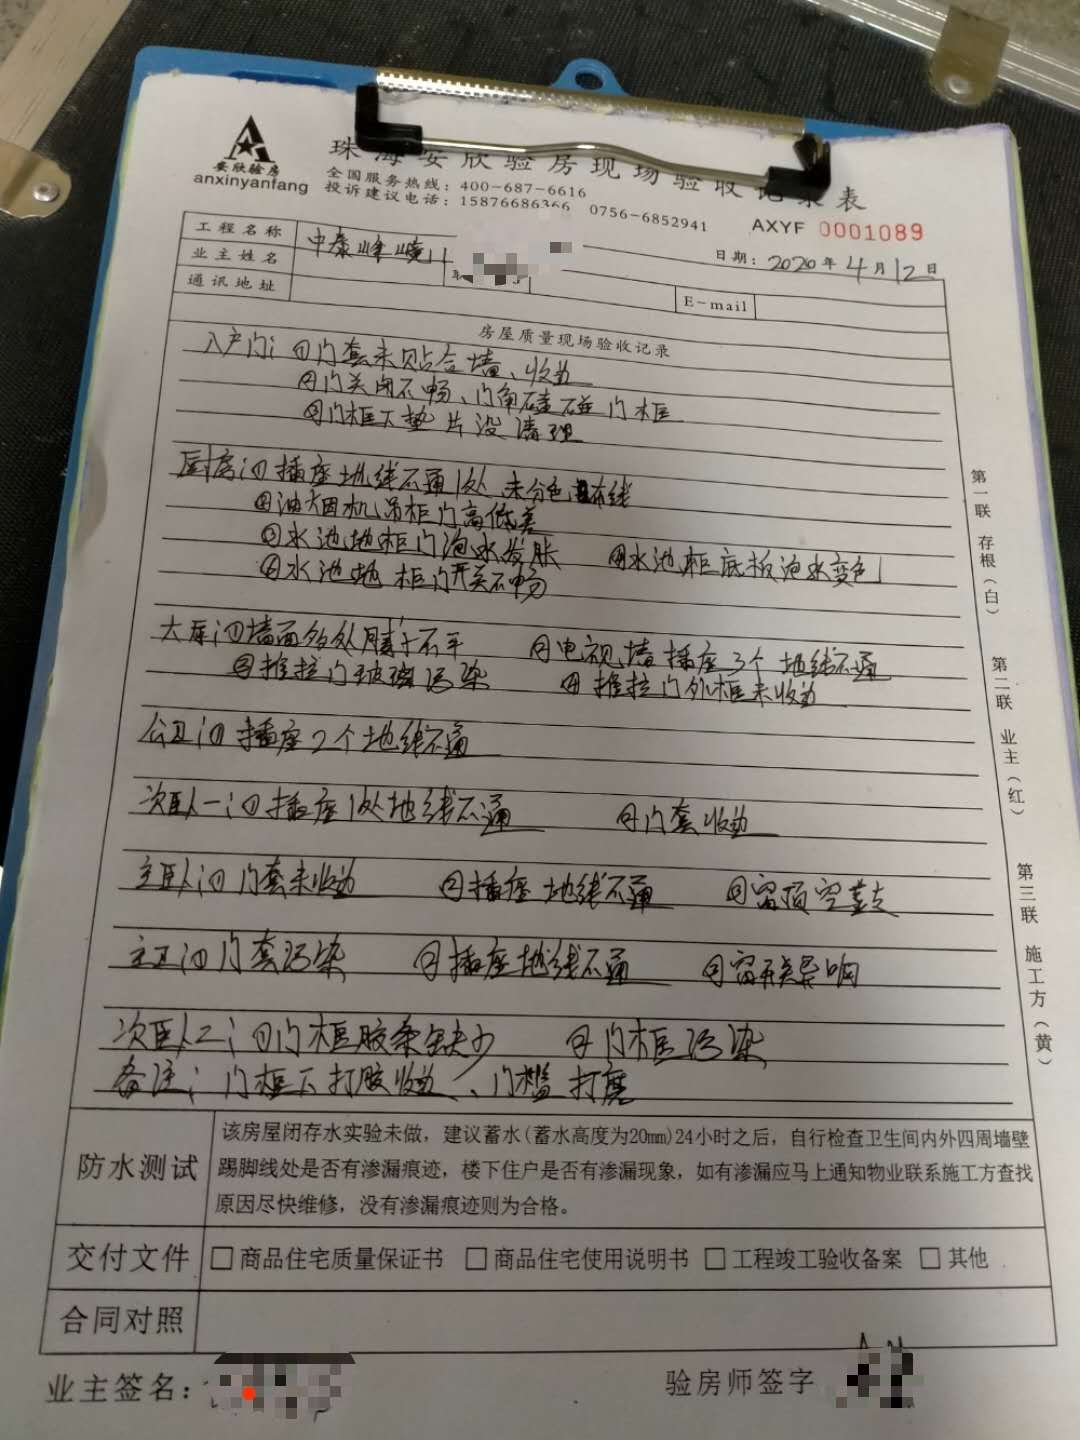 安欣验房
anxinyanfang
珠海安欣验房现场验收记录表
全国服务热线：400-687-6616
投诉建议电话：15876686366 0756-6852941
AXYF 0001089
工程名称 中泰峰境11
日期：2020年4月12日
业主姓名
通讯地址 E-mail
房屋质量现场验收记录
入户门：①门套未贴合墙、收边
②门关闭不畅、门角磕碰门框
③门框下垫片没清理
厨房：①插座地线不通1处、未分色布线
②油烟机吊柜门高低差
③水池地柜门泡水发胀 ④水池柜底板泡水变色
④水池地柜门开关不畅
大厅：①墙面多处腻子不平 ②电视墙插座3个地线不通
③推拉门玻璃污染 ④推拉门外框未收边
公卫：①插座2个地线不通
次卧一：①插座1处地线不通 ②门套收边
主卧：①门套未收边 ②插座地线不通 ③窗顶空鼓
主卫：①门套污染 ②插座地线不通 ③窗开关异响
次卧二：①门框胶条缺少 ②门框污染
备注：门框下打胶收边、门槛打磨
防水测试
该房屋闭存水实验未做，建议蓄水(蓄水高度为20mm)24小时之后，自行检查卫生间内外四周墙壁
踢脚线处是否有渗漏痕迹，楼下住户是否有渗漏现象，如有渗漏应马上通知物业联系施工方查找
原因尽快维修，没有渗漏痕迹则为合格。
交付文件 □ 商品住宅质量保证书 □ 商品住宅使用说明书 □ 工程竣工验收备案 □ 其他
合同对照
业主签名：
验房师签字
第一联 存根（白）
第二联 业主（红）
第三联 施工方（黄）